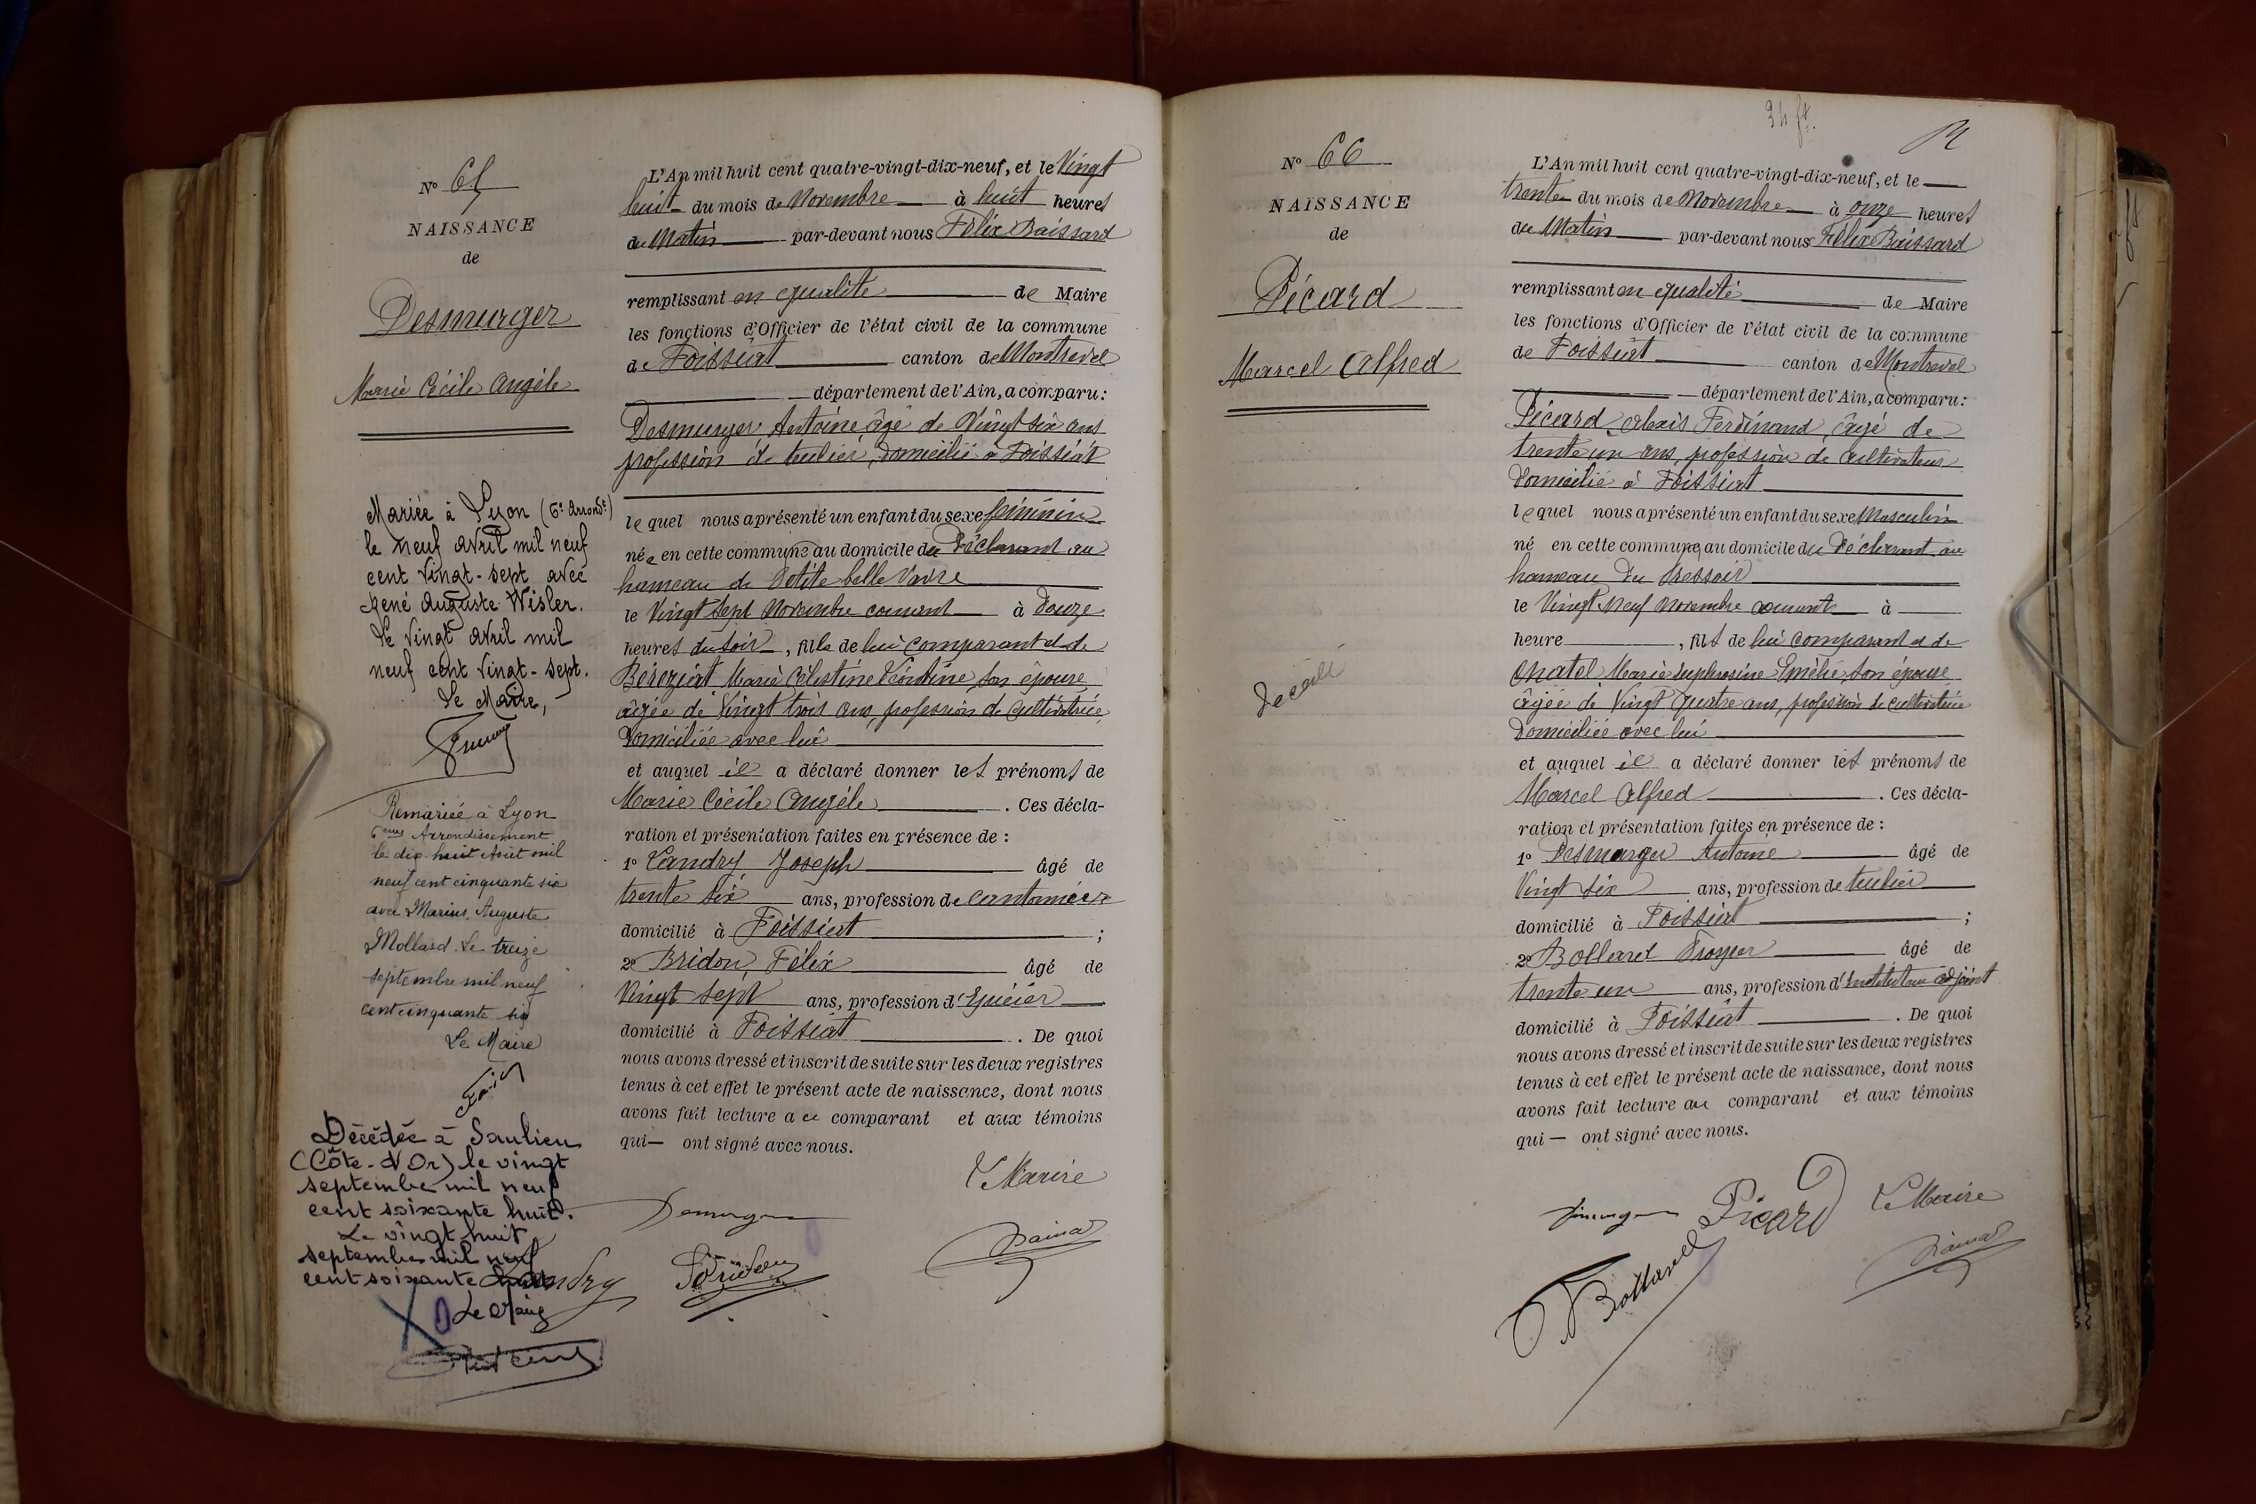 N° 65
NAISSANCE
de
Desmurger
Marie Cécile Angèle
Mariée à Lyon (6e Arrondt)
le neuf avril mil neuf
cent vingt-sept avec
René Auguste Wisler.
Le vingt avril mil
neuf cent vingt-sept.
Le Maire,
Remariée à Lyon
6ème Arrondissement
le dix huit Août mil
neuf cent cinquante six
avec Marius, Auguste
Mollard. Le treize
septembre mil neuf
cent cinquante six
Le Maire
Décédée à Saulieu
(Côte-d'Or) le vingt
septembre mil neuf
cent soixante huit.
Le vingt huit
septembre mil neuf
cent soixante huit
Le Maire
L'An mil huit cent quatre-vingt-dix-neuf, et le Vingt
huit du mois de Novembre à huit heures
du Matin par-devant nous Félix Baissard
remplissant en qualité de Maire
les fonctions d'Officier de l'état civil de la commune
de Foissiat canton de Montrevel
département de l'Ain, a comparu:
Desmurger Antoine âgé de Vingt six ans
profession de tuilier, domicilié à Foissiat
lequel nous a présenté un enfant du sexe féminin
née en cette commune au domicile du Déclarant au
hameau de Petite belle Vavre
le Vingt sept Novembre courant à Douze
heures du soir, fille de lui comparant et de
Béréziat Marie Célestine Léontine son épouse
âgée de Vingt trois ans, profession de cultivatrice
domiciliée avec lui
et auquel il a déclaré donner les prénoms de
Marie Cécile Angèle. Ces décla-
ration et présentation faites en présence de :
1° Landry Joseph âgé de
trente six ans, profession de cantonnier
domicilié à Foissiat ;
2° Bridon, Félix âgé de
Vingt sept ans, profession d'Epicier
domicilié à Foissiat. De quoi
nous avons dressé et inscrit de suite sur les deux registres
tenus à cet effet le présent acte de naissance, dont nous
avons fait lecture au comparant et aux témoins
qui — ont signé avec nous.
Le Maire
Desmurger
Landry Bridon
34 ft.
N° 66
NAISSANCE
de
Picard
Marcel Alfred
Décédé
L'An mil huit cent quatre-vingt-dix-neuf, et le
trente du mois de Novembre à onze heures
du Matin par-devant nous Félix Baissard
remplissant en qualité de Maire
les fonctions d'Officier de l'état civil de la commune
de Foissiat canton de Montrevel
département de l'Ain, a comparu:
Picard Alexis Ferdinand, âgé de
trente un ans, profession de cultivateur
domicilié à Foissiat
lequel nous a présenté un enfant du sexe Masculin
né en cette commune, au domicile du Déclarant au
hameau du Pressoir
le Vingt neuf novembre courant à
heure , fils de lui comparant et de
Chatel Marie Euphrosine Emélie son épouse
âgée de Vingt quatre ans, profession de cultivatrice
Domiciliée avec lui
et auquel il a déclaré donner les prénoms de
Marcel Alfred. Ces décla-
ration et présentation faites en présence de :
1° Desmurger Antoine âgé de
Vingt six ans, profession de tuilier
domicilié à Foissiat ;
2° Bollard âgé de
trente un ans, profession d'Instituteur adjoint
domicilié à Foissiat. De quoi
nous avons dressé et inscrit de suite sur les deux registres
tenus à cet effet le présent acte de naissance, dont nous
avons fait lecture au comparant et aux témoins
qui — ont signé avec nous.
Desmurger Picard Le Maire